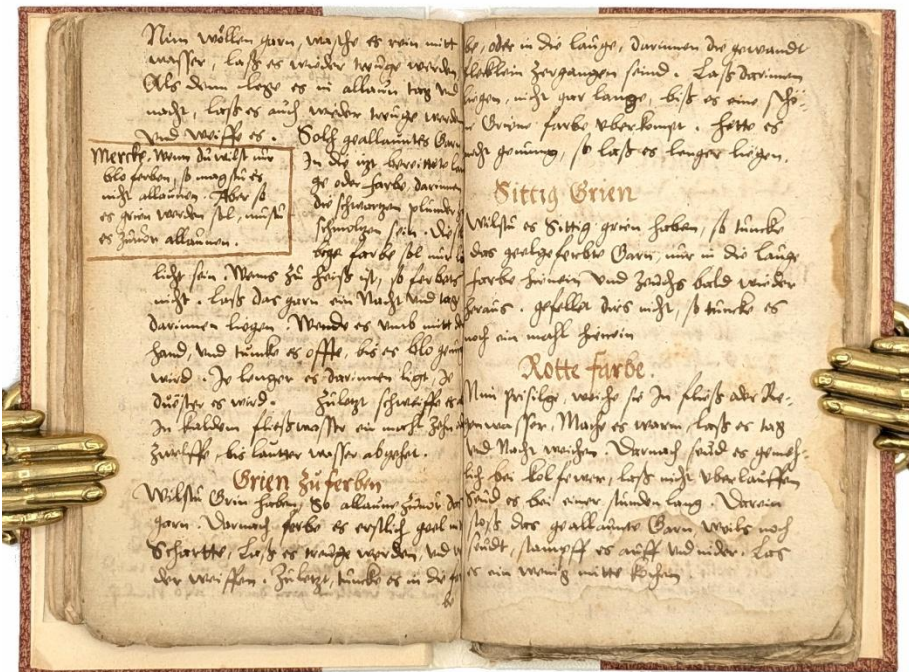 Nim wöllen garn, wasche es rein mitt
wasser, laß es wieder treuge werden
Als denn lege es in allaun tag vnd
nacht, laß es auch wieder treuge werden
vnd weiffe es. Solch geallauntes Garn
Mercke. Wenn du wilst nur
blo ferben, so magstu es
nicht allaunen. Aber so
es grien werden sol, mustu
es zuuor allaunen.
In die itzt bereittete lau
ge oder farbe, darinnen
die schwartzen plunder
schmoltzen sein. Die
farbe sol nur
licht sein. Wenns zu heiß ist, so ferbets
nicht. Laß das garn ein Nacht vnd tag
darinnen liegen. Wende es vmb mitt der
hand, vnd tuncke es offte, bis es blo genug
wird. Je lenger es darinnen ligt, Je
düster es wird. Zuletzt schweiffe es
In kaldem fließwasser ein mahl zehn
zwelffe, bis lautter wasser abgehet.
Grien zu ferben
Wilstu Grin haben, So allaune zuuor das
garn. Darnach ferbe es erstlich geel mit
Schartte, Laß es treuge werden, vnd
der weiffen. Zuletzt, tuncke es in die
be, oder in die lauge, darinnen die gewandt
flecklein zergangen seind. Laß darinnen
liegen, nicht gar lange, biß es eine schö-
ne Griene farbe vberkompt. Hette es
nicht genung, so laß es lenger liegen.
Sittig Grien
Wilstu es Sittig grien haben, so tuncke
das geelgeferbte Garn, nur in die lauge
farbe hinein vnd zeuchs bald wieder
heraus. gefellet dirs nicht, so tuncke es
noch ein mahl hinein
Rotte farbe.
Nim prisilge, weiche sie In fließ oder Re-
genwasser, Mache es warm, laß es tag
vnd Nacht weichen. Darnach seud es gemeh-
lich bei kolfewer, laß nicht vberlauffen
Seud es bei einer stunden lang. Darein
stoß das geallaunte Garn weils noch
seudt, stampff es auff vnd nider. Las
es ein wenig mitte kochen